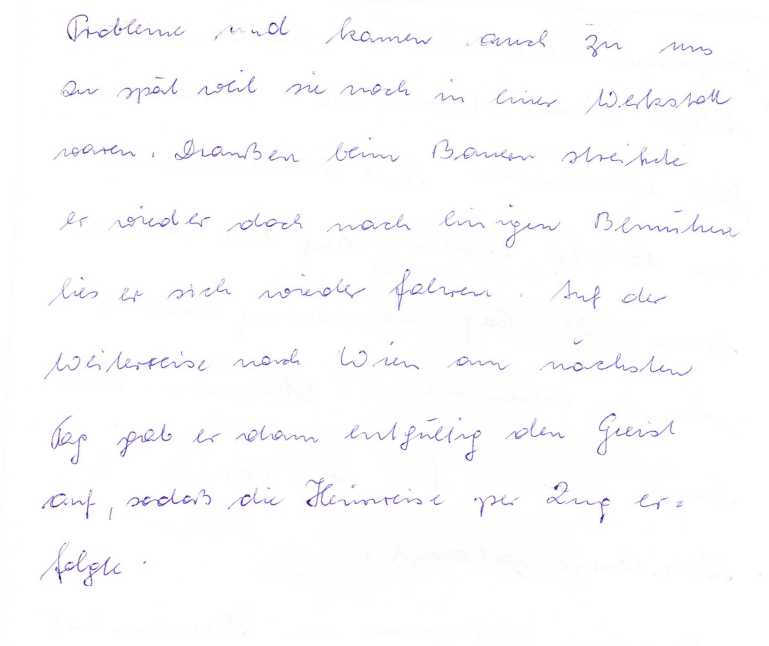 Probleme und kamen auch zu uns
zu spät weil sie noch in einer Werkstatt
waren. Draußen beim Bauern streikte
er wieder doch nach einigen Bemühen
lies er sich wieder fahren. Auf der
Weiterreise nach Wien am nächsten
Tag gab er dann entgültig den Geist
auf, sodaß die Heimreise per Zug er=
folgte.